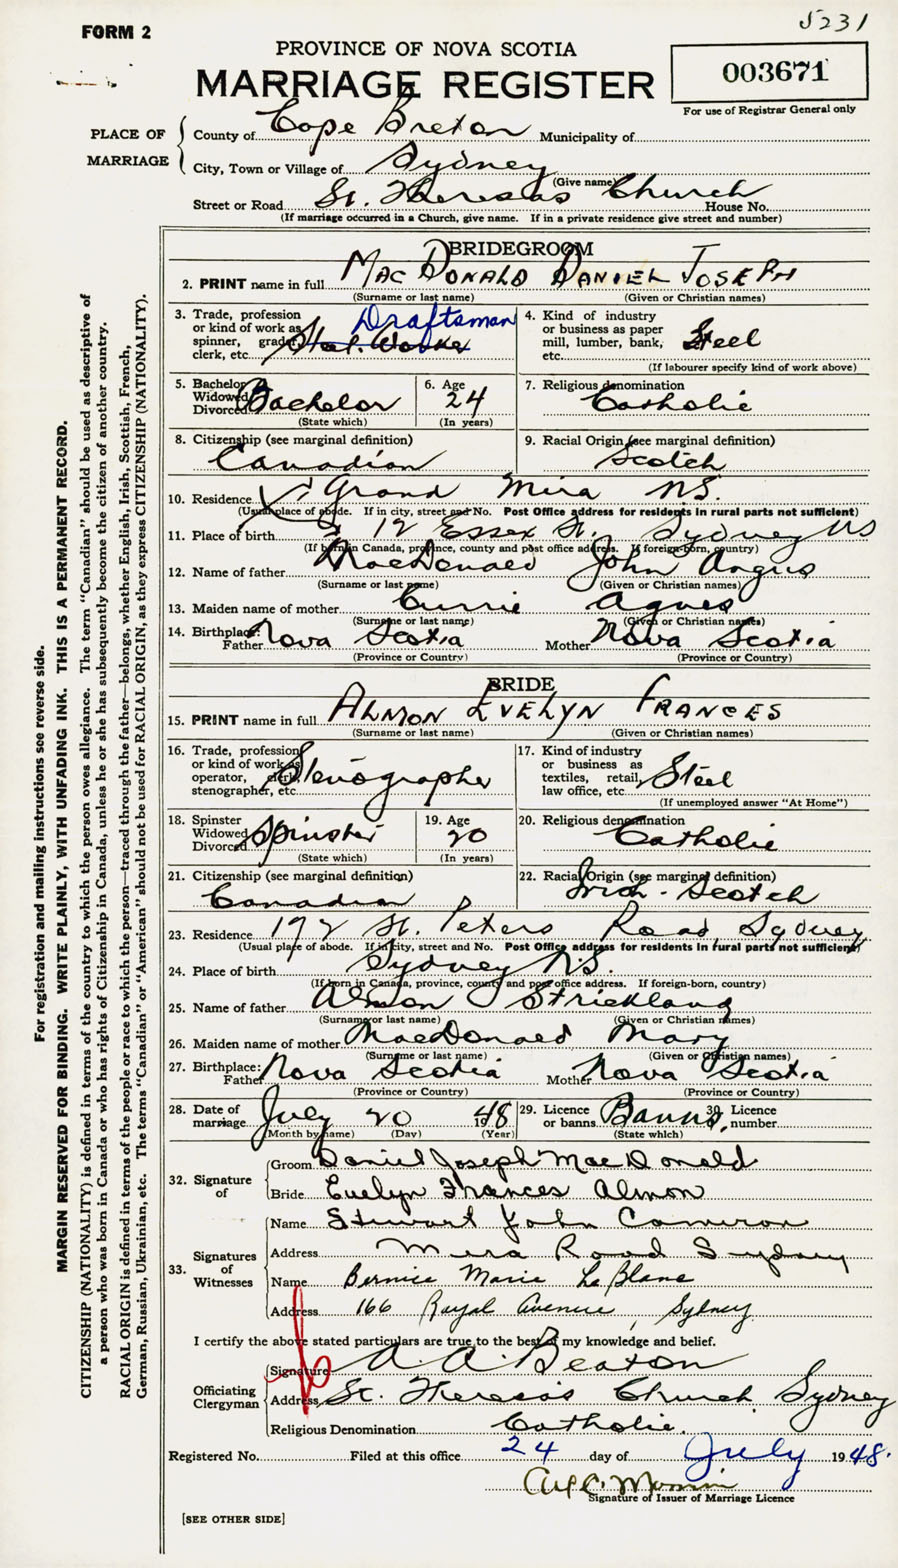 5231
FORM 2
PROVINCE OF NOVA SCOTIA
MARRIAGE REGISTER
003671
For use of Registrar General only
PLACE OF MARRIAGE
County of Cape Breton Municipality of
City, Town or Village of Sydney
(Give name)
Street or Road St. Theresas Church House No.
(If marriage occurred in a Church, give name. If in a private residence give street and number)
BRIDEGROOM
2. PRINT name in full MacDonald Daniel Joseph
(Surname or last name) (Given or Christian names)
3. Trade, profession or kind of work as spinner, grader, clerk, etc. Draftsman
4. Kind of industry or business as paper mill, lumber, bank, etc. Steel
(If labourer specify kind of work above)
5. Bachelor Widowed Divorced Bachelor
(State which)
6. Age 24
(In years)
7. Religious denomination Catholic
8. Citizenship (see marginal definition) Canadian
9. Racial Origin (see marginal definition) Scotch
10. Residence Grand Mira NS.
(Usual place of abode. If in city, street and No. Post Office address for residents in rural parts not sufficient)
11. Place of birth 12 Essex St. Sydney NS
(If born in Canada, province, county and post office address. If foreign-born, country)
12. Name of father MacDonald John Angus
(Surname or last name) (Given or Christian names)
13. Maiden name of mother Currie Agnes
(Surname or last name) (Given or Christian names)
14. Birthplace: Father Nova Scotia Mother Nova Scotia
(Province or Country) (Province or Country)
BRIDE
15. PRINT name in full Almon Evelyn Frances
(Surname or last name) (Given or Christian names)
16. Trade, profession or kind of work as operator, clerk, stenographer, etc. Stenographer
17. Kind of industry or business as textiles, retail, law office, etc. Steel
(If unemployed answer "At Home")
18. Spinster Widowed Divorced Spinster
(State which)
19. Age 20
(In years)
20. Religious denomination Catholic
21. Citizenship (see marginal definition) Canadian
22. Racial Origin (see marginal definition) Irish-Scotch
23. Residence 192 St. Peters Road, Sydney
(Usual place of abode. If in city, street and No. Post Office address for residents in rural parts not sufficient)
24. Place of birth Sydney N.S.
(If born in Canada, province, county and post office address. If foreign-born, country)
25. Name of father Almon Strickland
(Surname or last name) (Given or Christian names)
26. Maiden name of mother MacDonald Mary
(Surname or last name) (Given or Christian names)
27. Birthplace: Father Nova Scotia Mother Nova Scotia
(Province or Country) (Province or Country)
28. Date of marriage July 20 1948
(Month by name) (Day) (Year)
29. Licence or banns Banns
(State which)
30. Licence number
32. Signature of
Groom Daniel Joseph MacDonald
Bride Evelyn Frances Almon
33. Signatures of Witnesses
Name Stewart John Cameron
Address Mira Road Sydney
Name Bernice Marie LeBlanc
Address 166 Royal Avenue, Sydney
I certify the above stated particulars are true to the best of my knowledge and belief.
Officiating Clergyman
Signature A. A. Beaton
Address St. Theresa's Church Sydney
Religious Denomination Catholic.
Registered No. Filed at this office 24 day of July 1948.
Signature of Issuer of Marriage Licence
[SEE OTHER SIDE]
For registration and mailing instructions see reverse side.
MARGIN RESERVED FOR BINDING. WRITE PLAINLY, WITH UNFADING INK. THIS IS A PERMANENT RECORD.
CITIZENSHIP (NATIONALITY) is defined in terms of the country to which the person owes allegiance. The term "Canadian" should be used as descriptive of
a person who was born in Canada or who has rights of Citizenship in Canada, unless he or she has subsequently become the citizen of another country.
RACIAL ORIGIN is defined in terms of the people or race to which the person—traced through the father—belongs, whether English, Irish, Scottish, French,
German, Russian, Ukrainian, etc. The terms "Canadian" or "American" should not be used for RACIAL ORIGIN, as they express CITIZENSHIP (NATIONALITY).